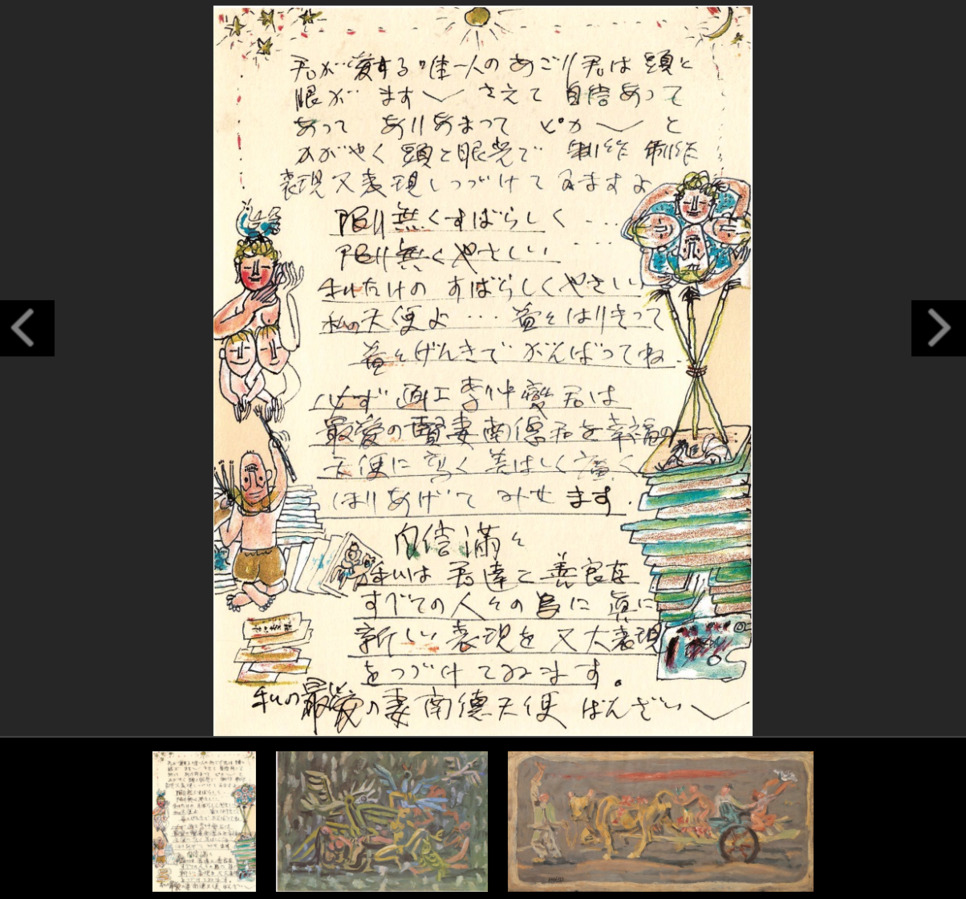 君が愛する唯一人のあごり君は頭と
眼が ます〜 さえて 自信あって
あって ありあまって ピカ〜 と
かがやく頭と眼光で 制作 制作
表現又表現しつづけてゐますよ
限り無くすばらしく ・・・
限り無くやさしい ・・・
私だけの すばらしくやさしい
私の天使よ ・・・ 益々はりきって
益々げんきで がんばってね
必ず 画工李仲燮君は
最愛の賢妻南徳君を幸福の
天使に 高く 美しく 広く
ほりあげて みせ ます.
自信満々
私は 君達と 善良な
すべての人々の為に 真に
新しい 表現を 又大表現
をつづけてゐます。
私の最愛の妻南徳天使 ばんざい〜